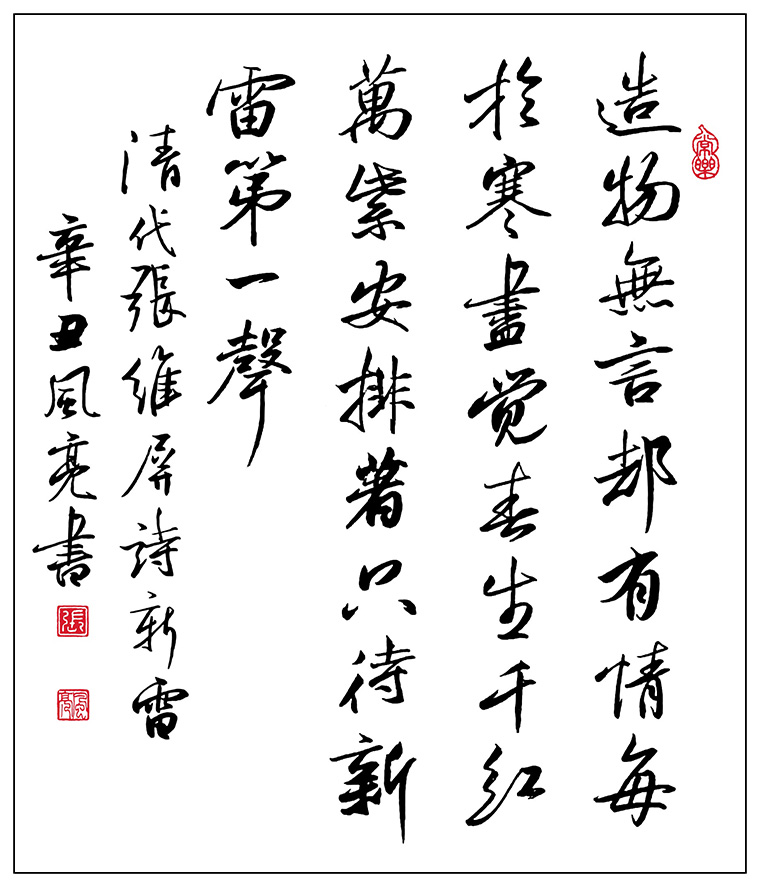 造物無言却有情每
於寒盡覺春生千紅
萬紫安排著只待新
雷第一聲
清代張維屏詩新雷
辛丑風亮書
常樂
張
風亮